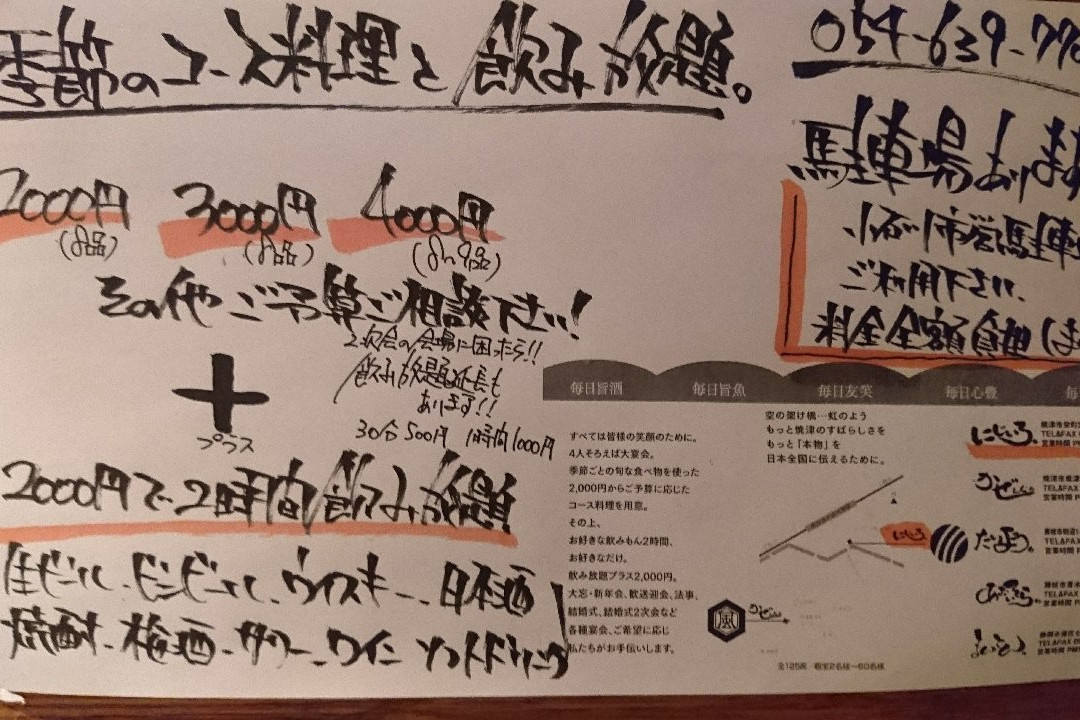 季節のコース料理と飲み放題。
2000円 3000円 4000円
(8品) (8品) (8〜9品)
その他ご予算ご相談下さい!
2次会の会場に困ったら!!
飲み放題延長も
あります!!
30分500円 1時間1000円
+
プラス
2000円で2時間飲み放題
生ビール、ビンビール、ウィスキー、日本酒
焼酎、梅酒、サワー、ワイン ソフトドリンク
054-639-770
駐車場あります
ご利用下さい、
料金全額負担しま
毎日旨酒 毎日旨魚 毎日友笑 毎日心豊 毎
すべては皆様の笑顔のために。
4人そろえば大宴会。
季節ごとの旬な食べ物を使った
2,000円からご予算に応じた
コース料理を用意。
その上、
お好きな飲みもん2時間、
お好きなだけ。
飲み放題プラス2,000円。
大忘・新年会、歓送迎会、法事、
結婚式、結婚式2次会など
各種宴会、ご希望に応じ
私たちがお手伝いします。
空の架け橋…虹のよう
もっと焼津のすばらしさを
もっと「本物」を
日本全国に伝えるために。
にじいろ。
風
うぜん。
全125席
にじいろ。
TEL&FAX
営業時間 P
うぜん。
TEL&FAX
営業時間 P
TEL&FAX
営業時間 P
TEL&FAX
営業時間 P
TEL&FAX
営業時間 PM